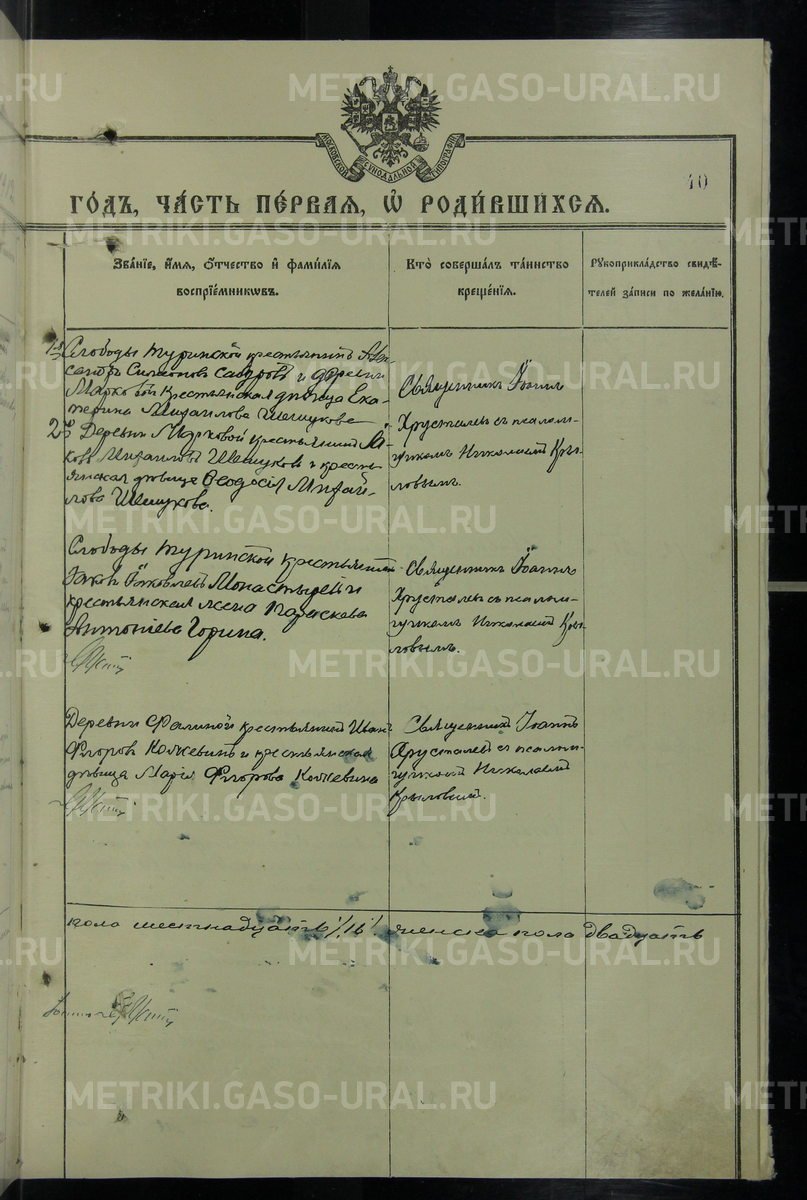 METRIKI.GASO-URAL.RU
МОСКОВСКОЙ СѴНОДАЛЬНОЙ ТИПОГРАФІИ
40
ГО́ДЪ, ЧА́СТЬ ПЕ́РВАЯ, Ѿ РОДИ́ВШИХСЯ.
Зва́нїе, и҆́мя, ѻ҆́тчество и҆ фами́лїя
воспрїе́мниковъ.
Кто̀ соверша́лъ та́инство
креще́нїя.
Рꙋкоприкла́дство свидѣ́-
телей за́писи по жела́нїю.
Слободы Туринской крестьянинъ Алек-
сандръ Симеоновъ и деревни
Марковой крестьянская дѣвица Ека-
терина Михаилова Шешукова
2. Деревни Марковой крестьянинъ Іа-
ковъ Михаиловъ Шешуковъ и кресть-
янская дѣвица Ѳеодосія Михаи-
лова Шешукова.
Священникъ Іоаннъ
Хрусталевъ съ псалом-
щикомъ Николаемъ Кры-
ловымъ.
Слободы Туринской крестьянинъ
Іаковъ Іаковлевъ Монастыревъ и
крестьянская жена Параскева
Антоніева Горина.
Священникъ Іоаннъ
Хрусталевъ съ псалом-
щикомъ Николаемъ Кры-
ловымъ.
Деревни Фалиной крестьянинъ Иванъ
Флоровъ Кожевинъ и крестьянская
дѣвица Марія Флорова Кожевина
Священникъ Іоаннъ
Хрусталевъ съ псалом-
щикомъ Николаемъ
Крыловымъ.
пола шестнадцать /16/ женска пола двадцать